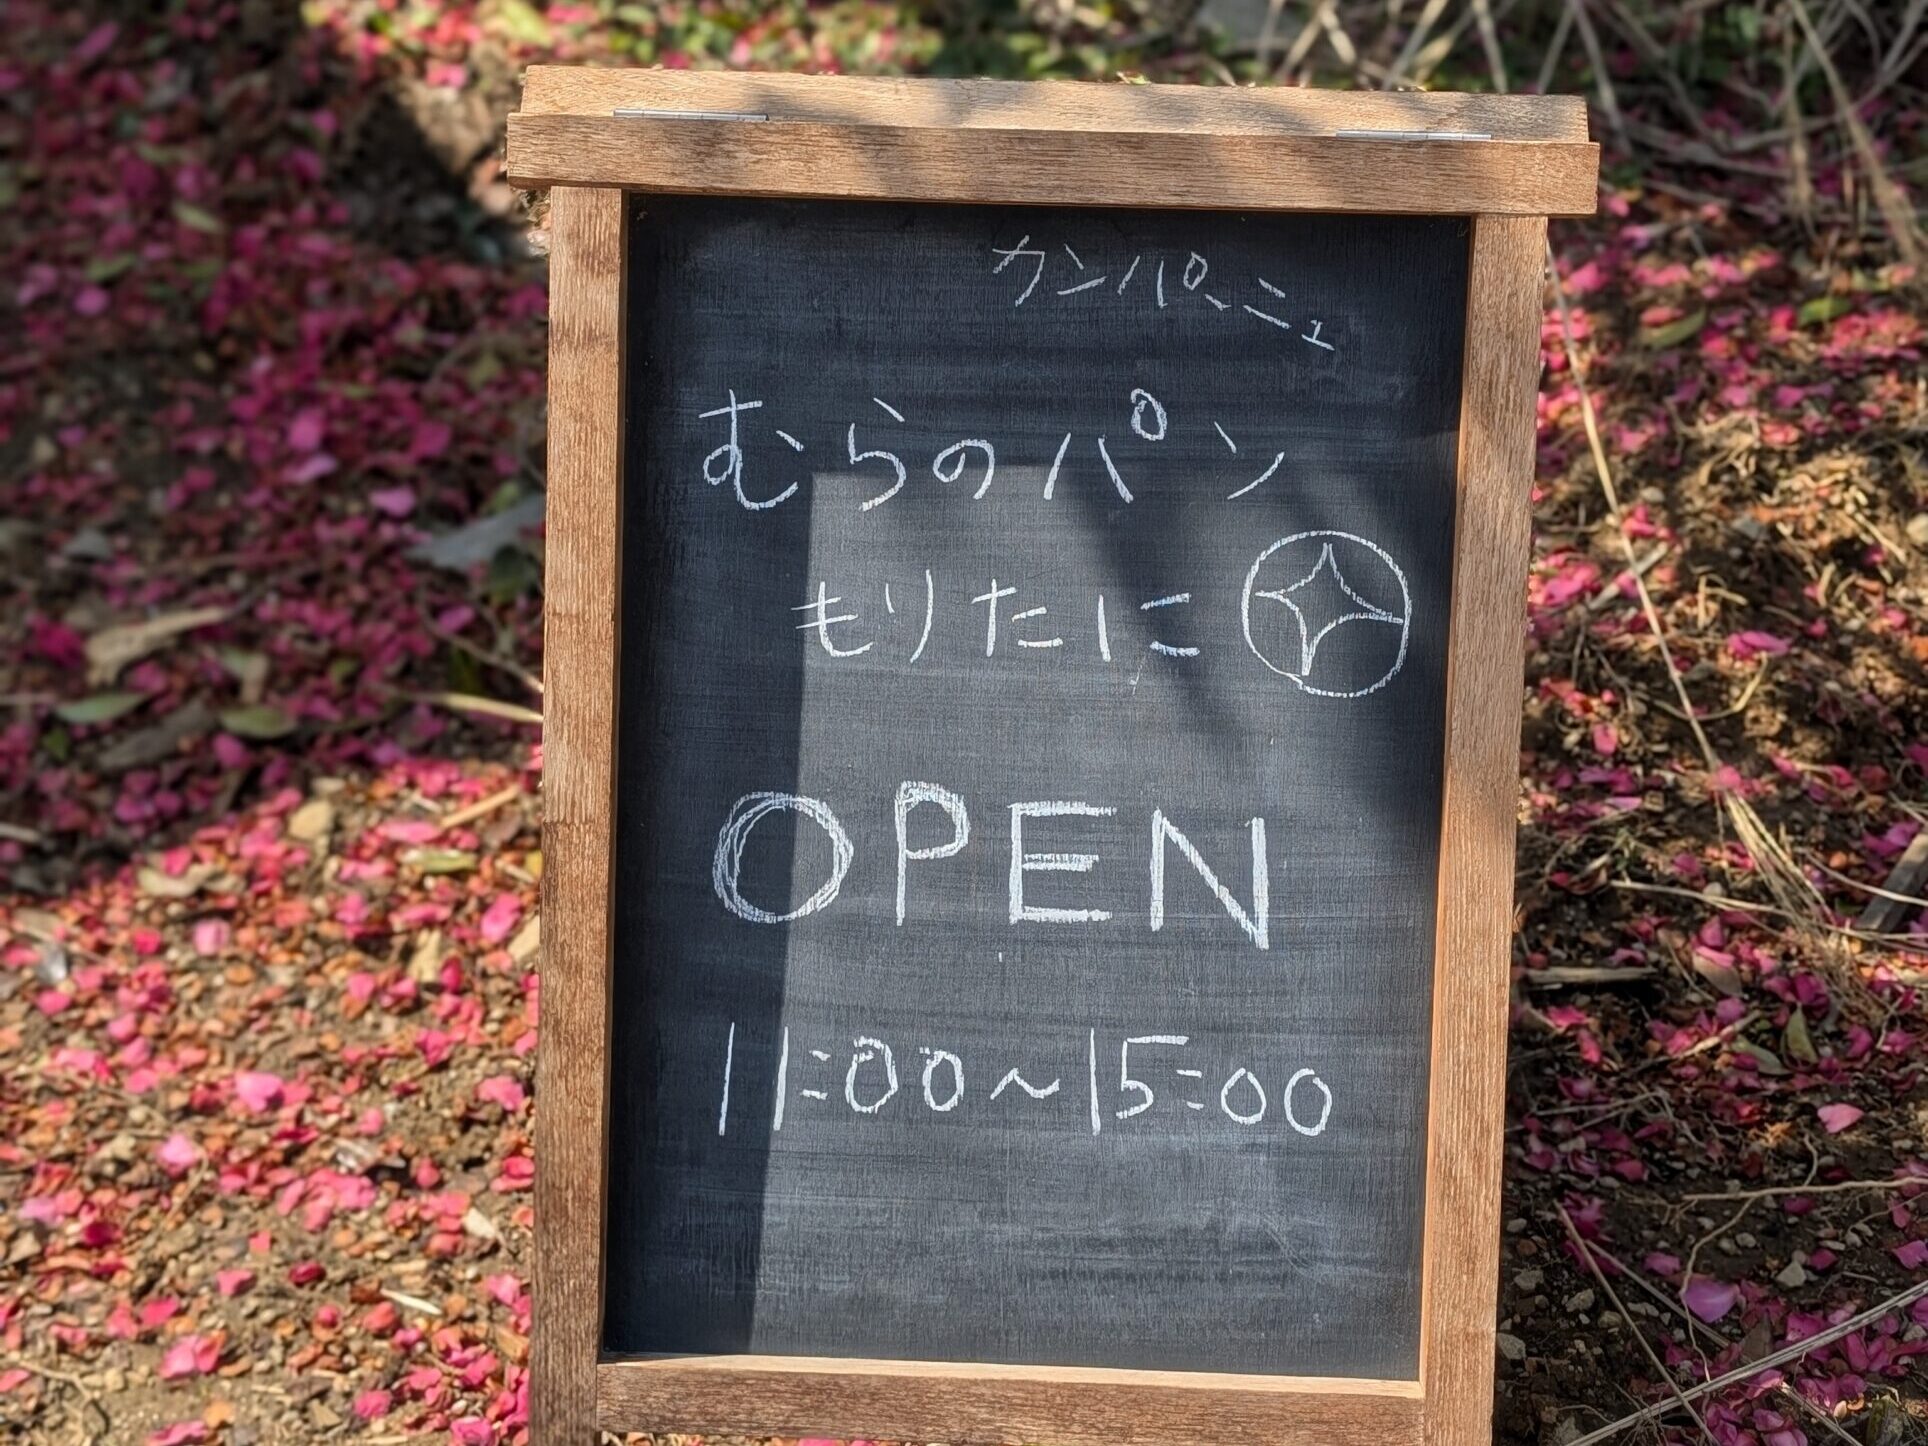 カンパーニュ
むらのパン
もりたに
OPEN
11:00~15:00